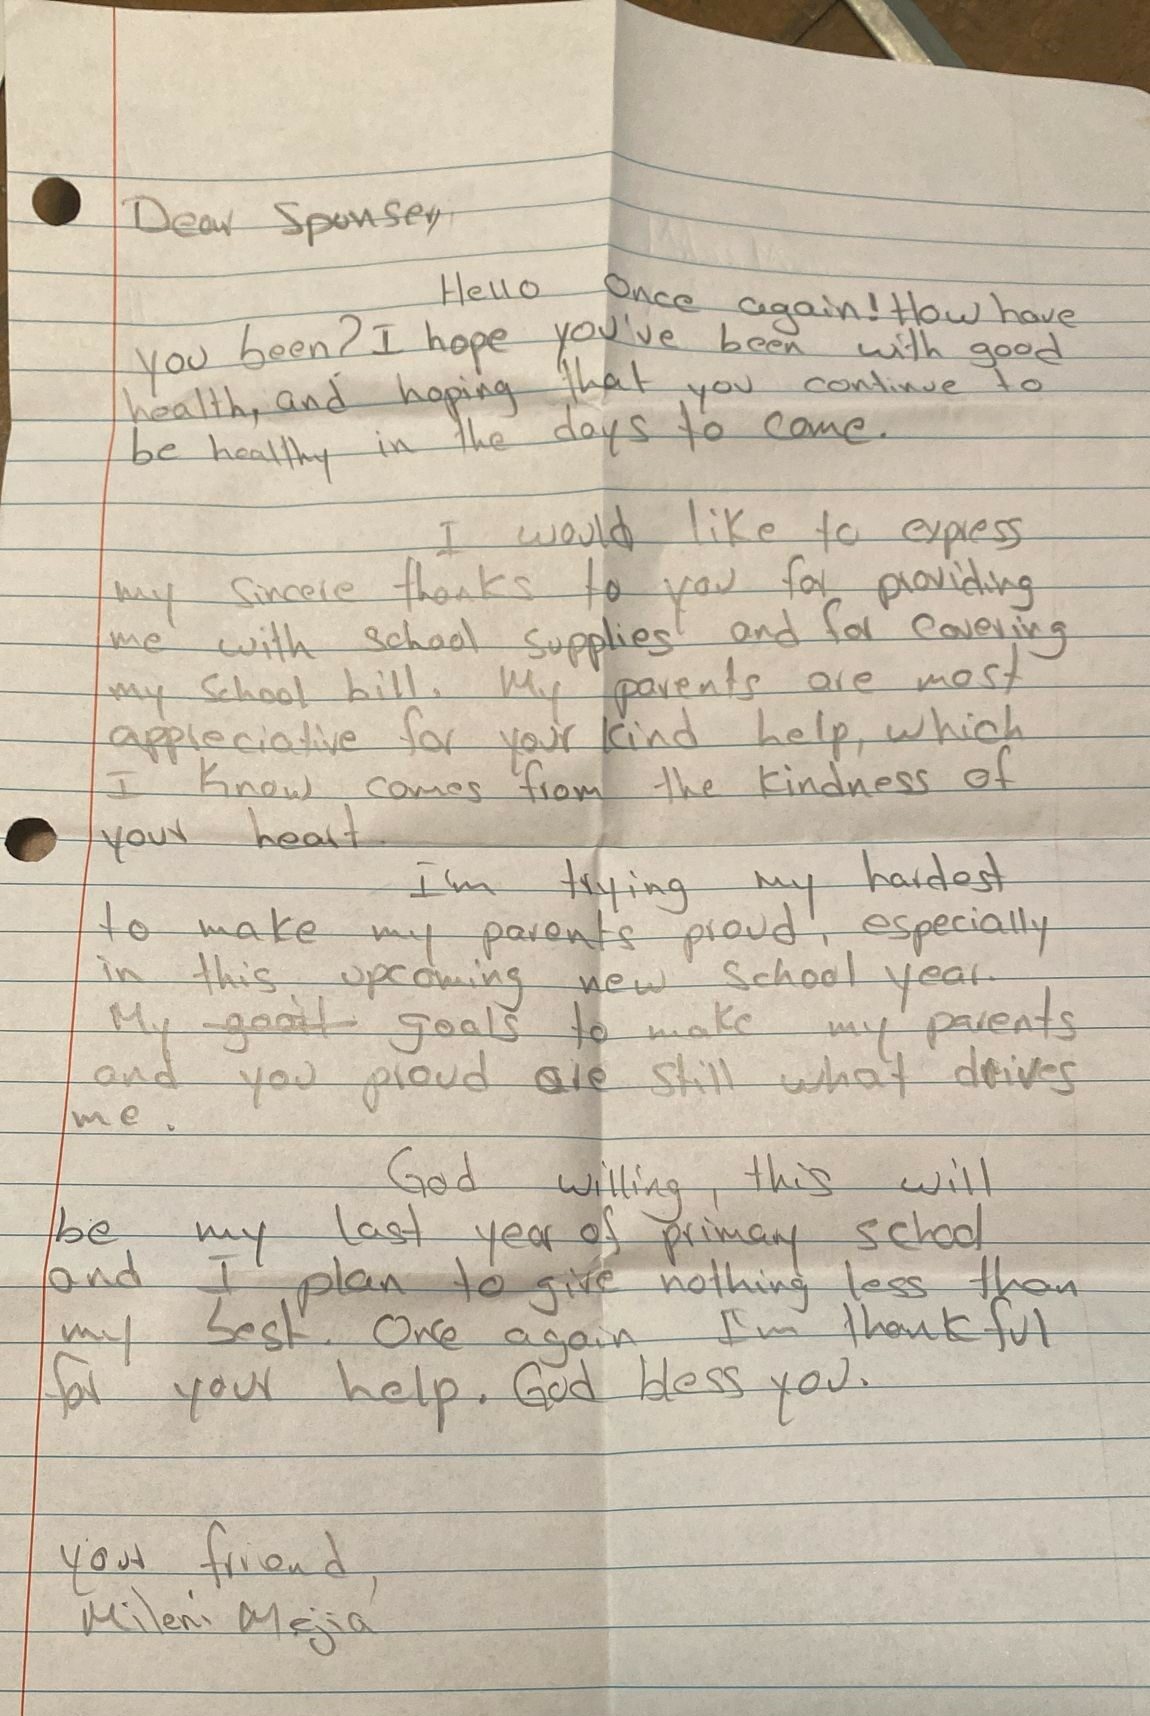 Dear Sponser,
Hello Once again! How have
you been? I hope you've been with good
health, and hoping that you continue to
be healthy in the days to come.
I would like to express
my sincere thanks to you for providing
me with school supplies and for covering
my school bill. My parents are most
appreciative for your kind help, which
I know comes from the kindness of
your heart.
I'm trying my hardest
to make my parents proud, especially
in this upcoming new school year.
My goals to make my parents
and you proud are still what drives
me.
God willing, this will
be my last year of primary school
and I plan to give nothing less than
my best. Once again I'm thankful
for your help. God bless you.
your friend,
Mileni Mejia